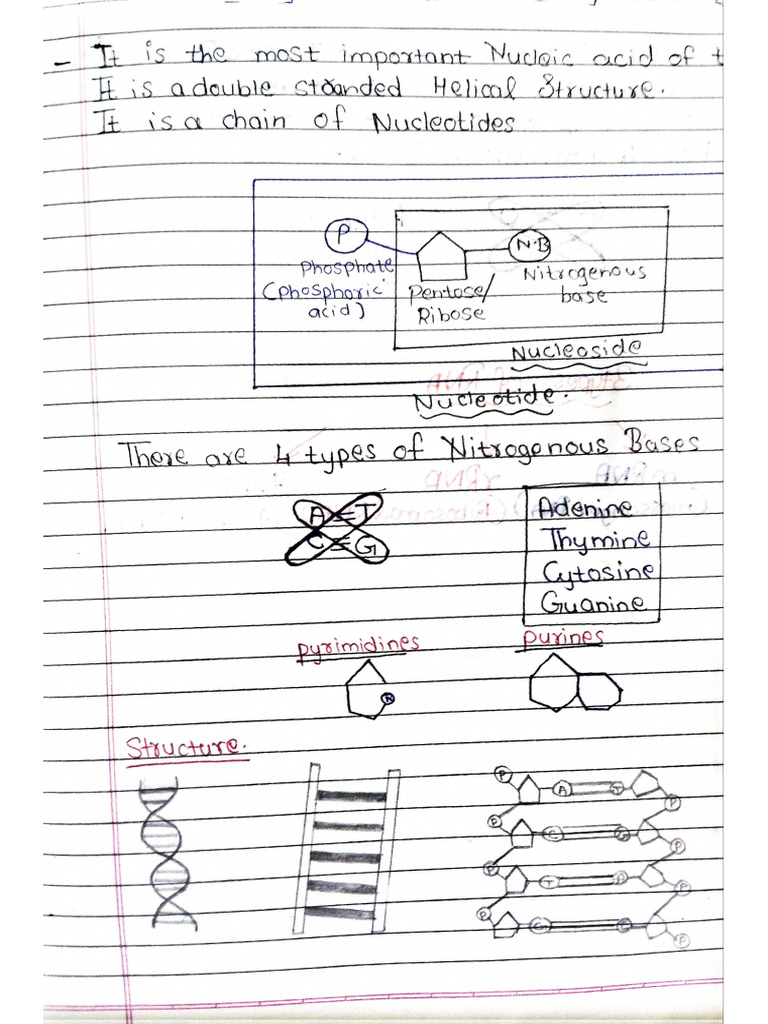 - It is the most important Nucleic acid of t
It is a double stranded Helical Structure.
It is a chain of Nucleotides
P
N.B
Phosphate
(Phosphoric
acid)
Pentose/
Ribose
Nitrogenous
base
Nucleoside
Nucleotide.
There are 4 types of Nitrogenous Bases
A = T
C ≡ G
Adenine
Thymine
Cytosine
Guanine
Pyrimidines
Purines
N
Structure.
P A T P
P C G P
P T A P
P G C P